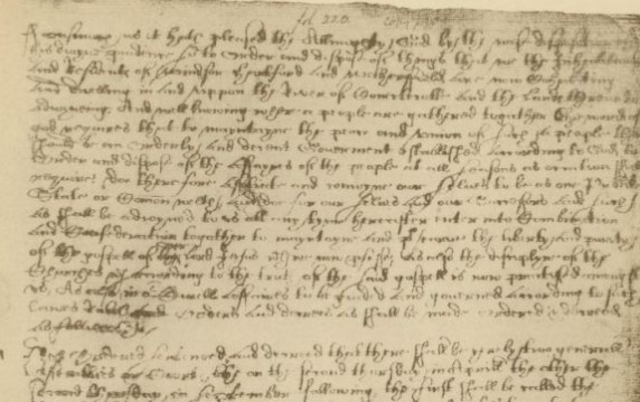 fol 220
Forasmuch as it hath pleased the Allmighty God by the wise disposition
his diuyne pruidence so to Order and dispose of things that we the Inhabitants
and Residents of Windsor Harteford and Wethersfield are now Cohabiting
and dwelling in and vppon the River of Conectecotte and the Lands thereunto
adioyneing And well knowing where a people are gathered together the word of
god requires that to mayntayne the peace and vnion of such a people
should be an orderly and decent Gouerment established according to God, to
Order and dispose of the affayres of the people at all seasons as occation shall
require; doe therefore assotiate and conioyne our selues to be as one Publike
State or Comonwelth, and doe for our selues and our Successors and such
as shall be adioyned to vs att any tyme hereafter enter into Combination
and Confederation together to mayntayne and prsearue the liberty and purity
of the gospell of our Lord Jesus wch we now prfesse, as also the disciplyne of the
Churches wch according to the truth of the said gospell is now practised amongst
vs, As also in or Ciuell affaires to be guided and gouerned according to such
Lawes Rules Orders and decrees as shall be made ordered & decreed
as followeth
It is Ordered sentenced and decreed that there shall be yerely two generall
Assemblies or Courts, the on the second thursday in Aprill the other the
second thursday, in September following, the first shall be called the